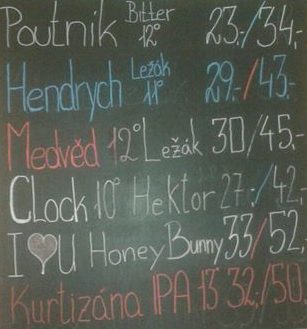 Poutník Bitter 12° 23,-/34,-
Hendrych Ležák 11° 29,-/43,-
Medvěd 12° Ležák 30/45,-
Clock 10° Hektor 27,-/42,
I ♥ U Honey Bunny 33/52,
Kurtizána IPA 13° 32,-/50